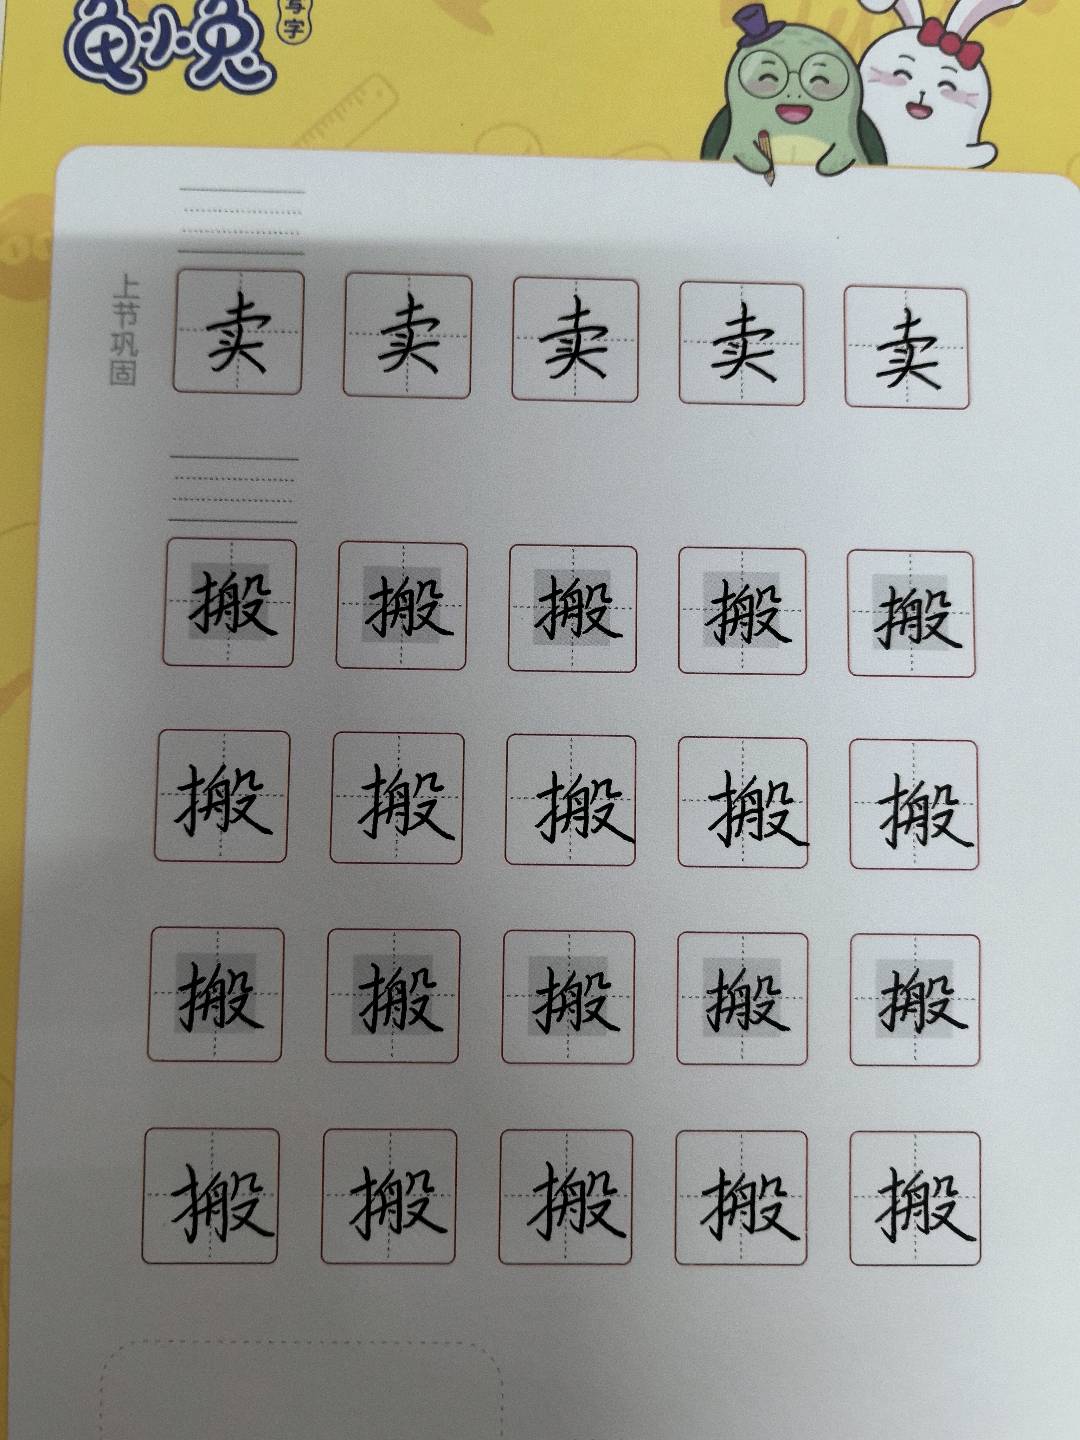 龟小兔
写字
上节巩固
卖 卖 卖 卖 卖
搬 搬 搬 搬 搬
搬 搬 搬 搬 搬
搬 搬 搬 搬 搬
搬 搬 搬 搬 搬